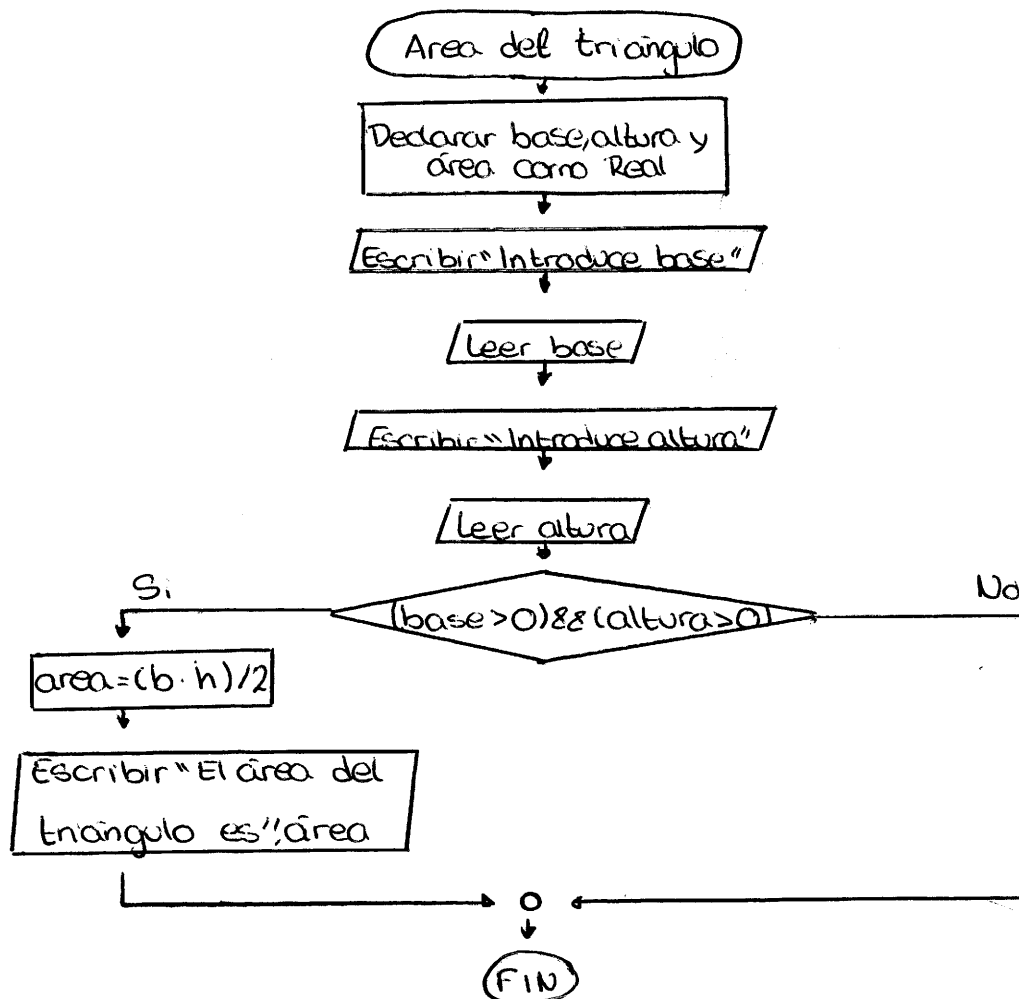 Area del triángulo
Declarar base, altura y
área como Real
Escribir "Introduce base"
Leer base
Escribir "Introduce altura"
Leer altura
Si
No
(base>0)&&(altura>0)
area=(b·h)/2
Escribir "El área del
triángulo es", área
FIN